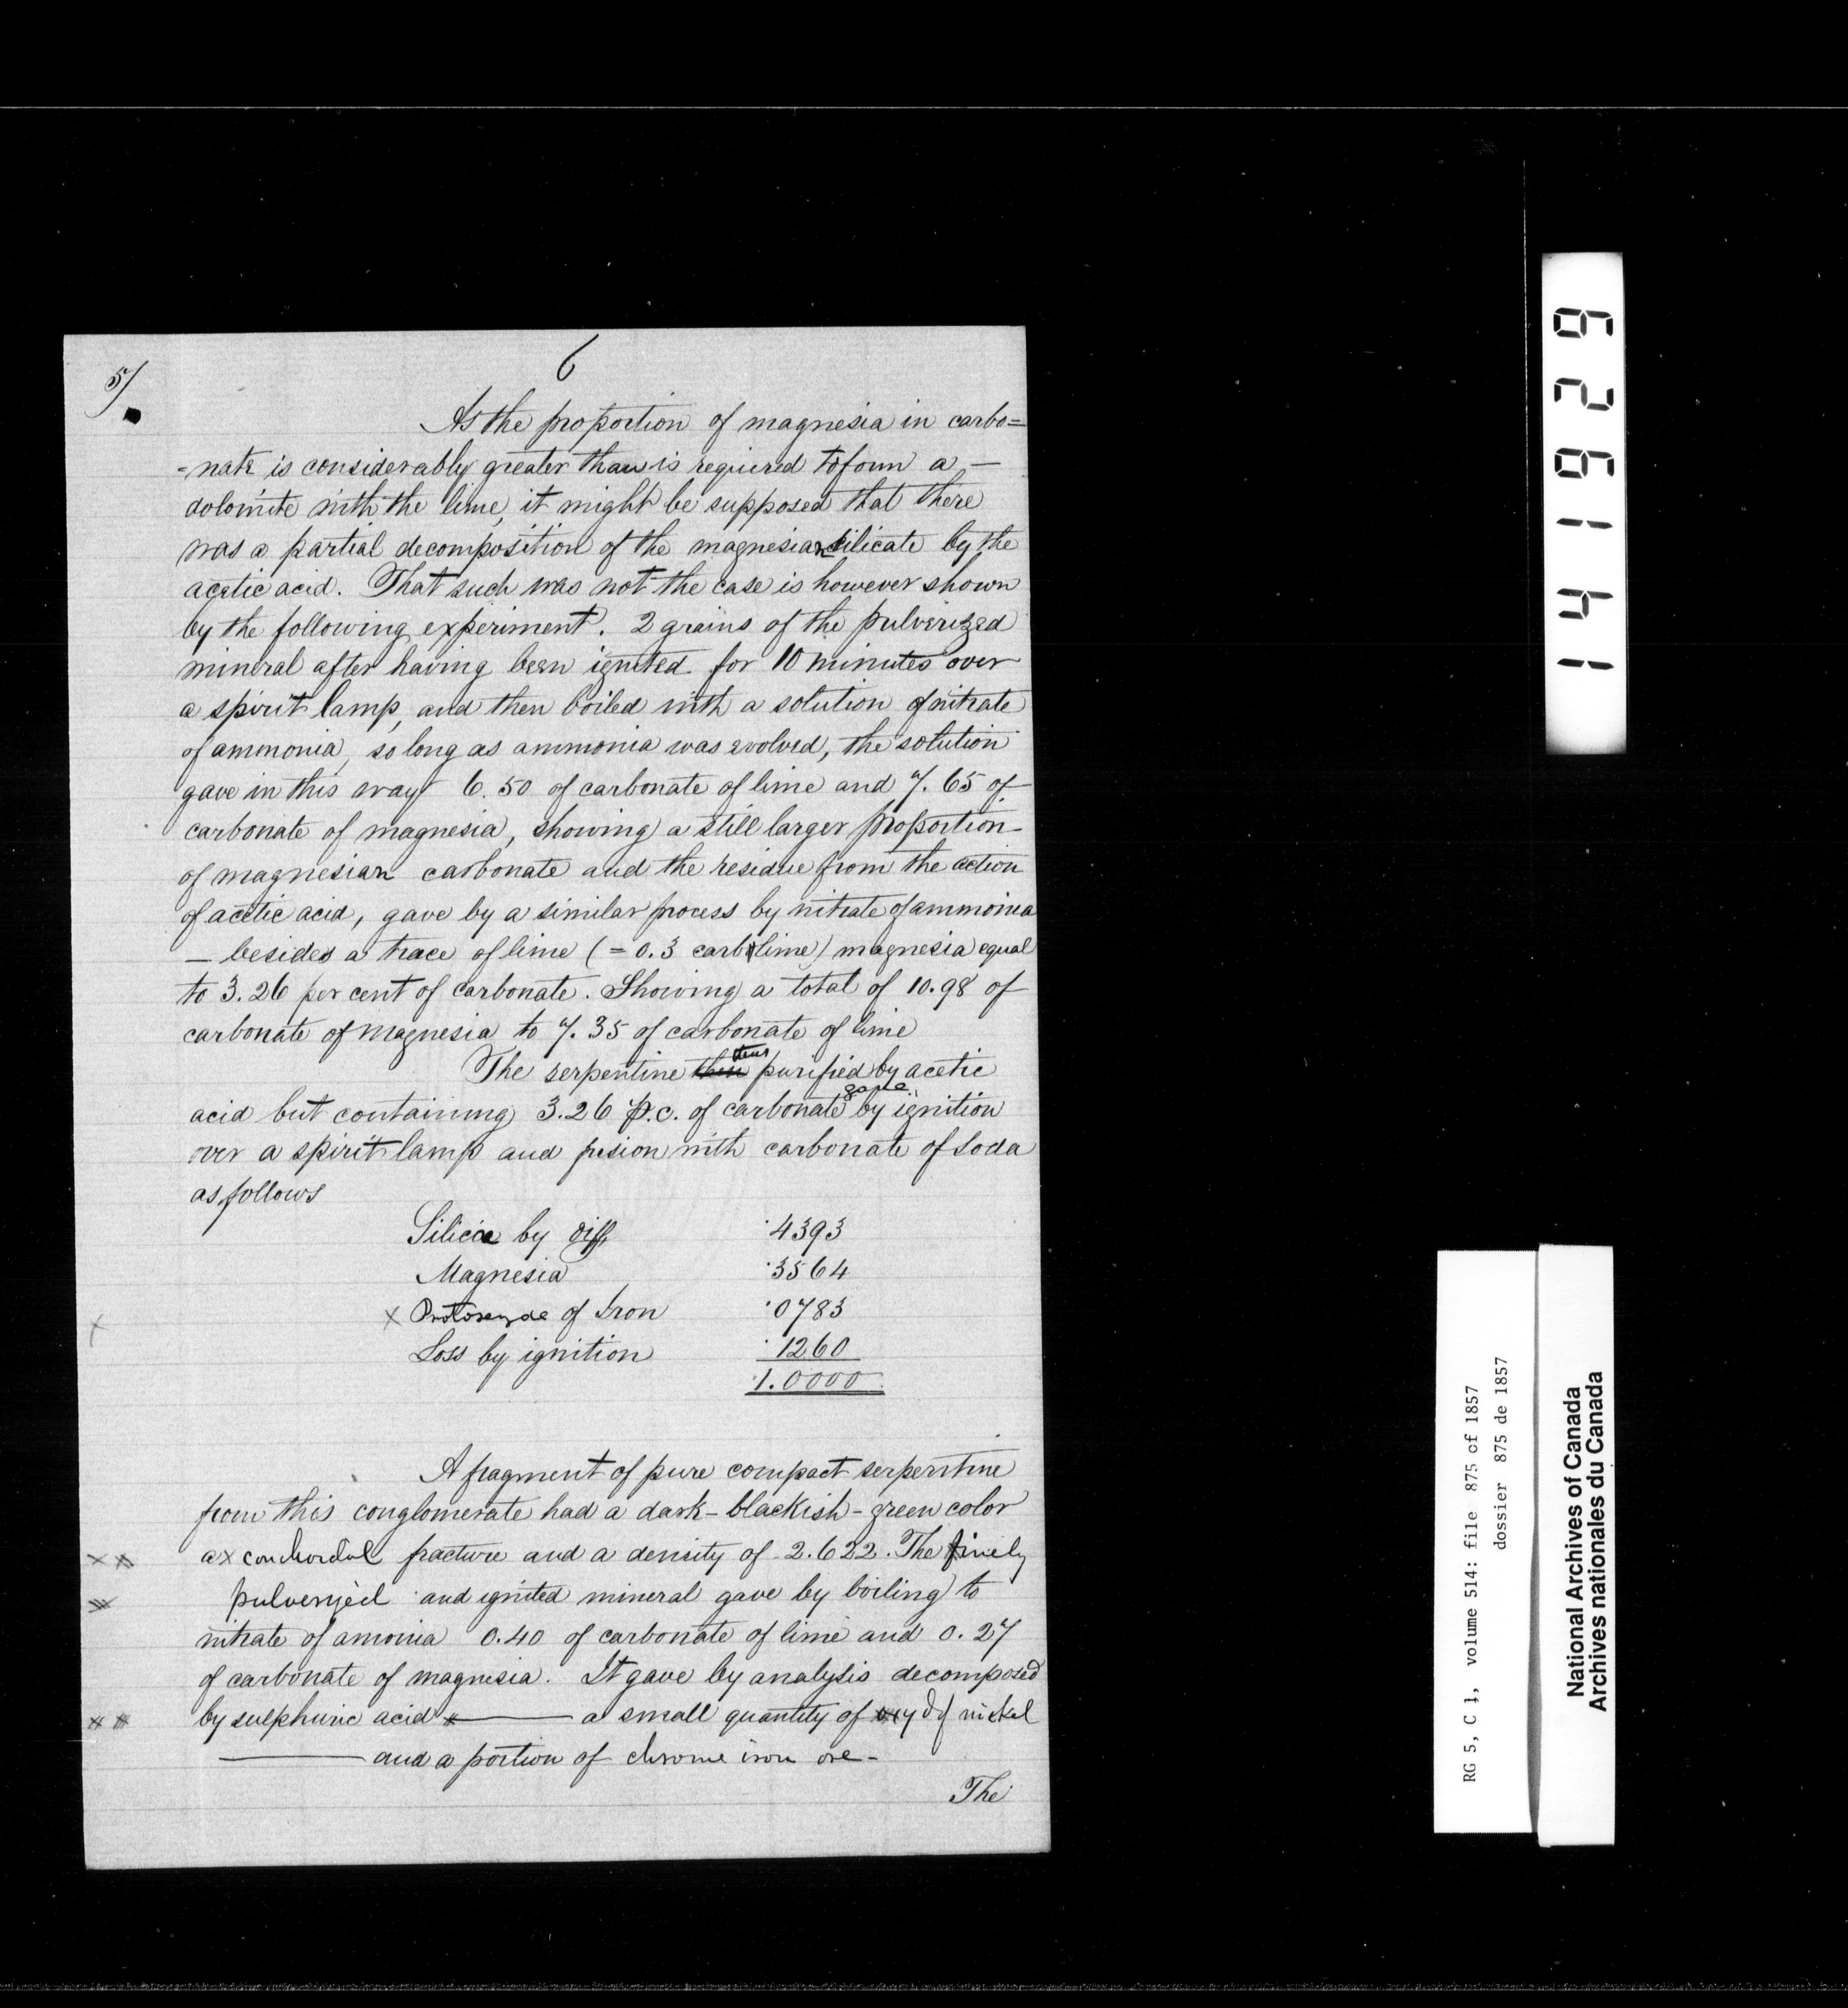 5/
6
As the proportion of magnesia in carbo=
=nate is considerably greater than is required to form a —
dolomite with the lime, it might be supposed that there
was a partial decomposition of the magnesian silicate by the
acetic acid. That such was not the case is however shown
by the following experiment. 2 grains of the pulverized
mineral after having been ignited for 10 minutes over
a spirit lamp, and then boiled with a solution of nitrate
of ammonia, so long as ammonia was evolved, the solution
gave in this way 6.50 of carbonate of lime and 7.65 of
carbonate of magnesia, showing a still larger proportion
of magnesian carbonate and the residue from the action
of acetic acid, gave by a similar process by nitrate of ammonia
— besides a trace of lime (= 0.3 carb lime) magnesia equal
to 3.26 per cent of carbonate. Showing a total of 10.98 of
carbonate of magnesia to 7.35 of carbonate of lime
The serpentine thus purified by acetic
acid but containing 3.26 p.c. of carbonate gave by ignition
over a spirit lamp and fusion with carbonate of soda
as follows
Silica by diff. .4393
Magnesia .3564
x Protoxyde of Iron .0783
Loss by ignition .1260
1.0000
A fragment of pure compact serpentine
from this conglomerate had a dark-blackish-green color
a x conchoidal fracture and a density of 2.622. The finely
pulverized and ignited mineral gave by boiling to
nitrate of amonia 0.40 of carbonate of lime and 0.27
of carbonate of magnesia. It gave by analysis decomposed
by sulphuric acid x——— a small quantity of oxyd of nickel
——— and a portion of chrome iron ore -
The
141929
RG 5, C 1, volume 514: file 875 of 1857
dossier 875 de 1857
National Archives of Canada
Archives nationales du Canada